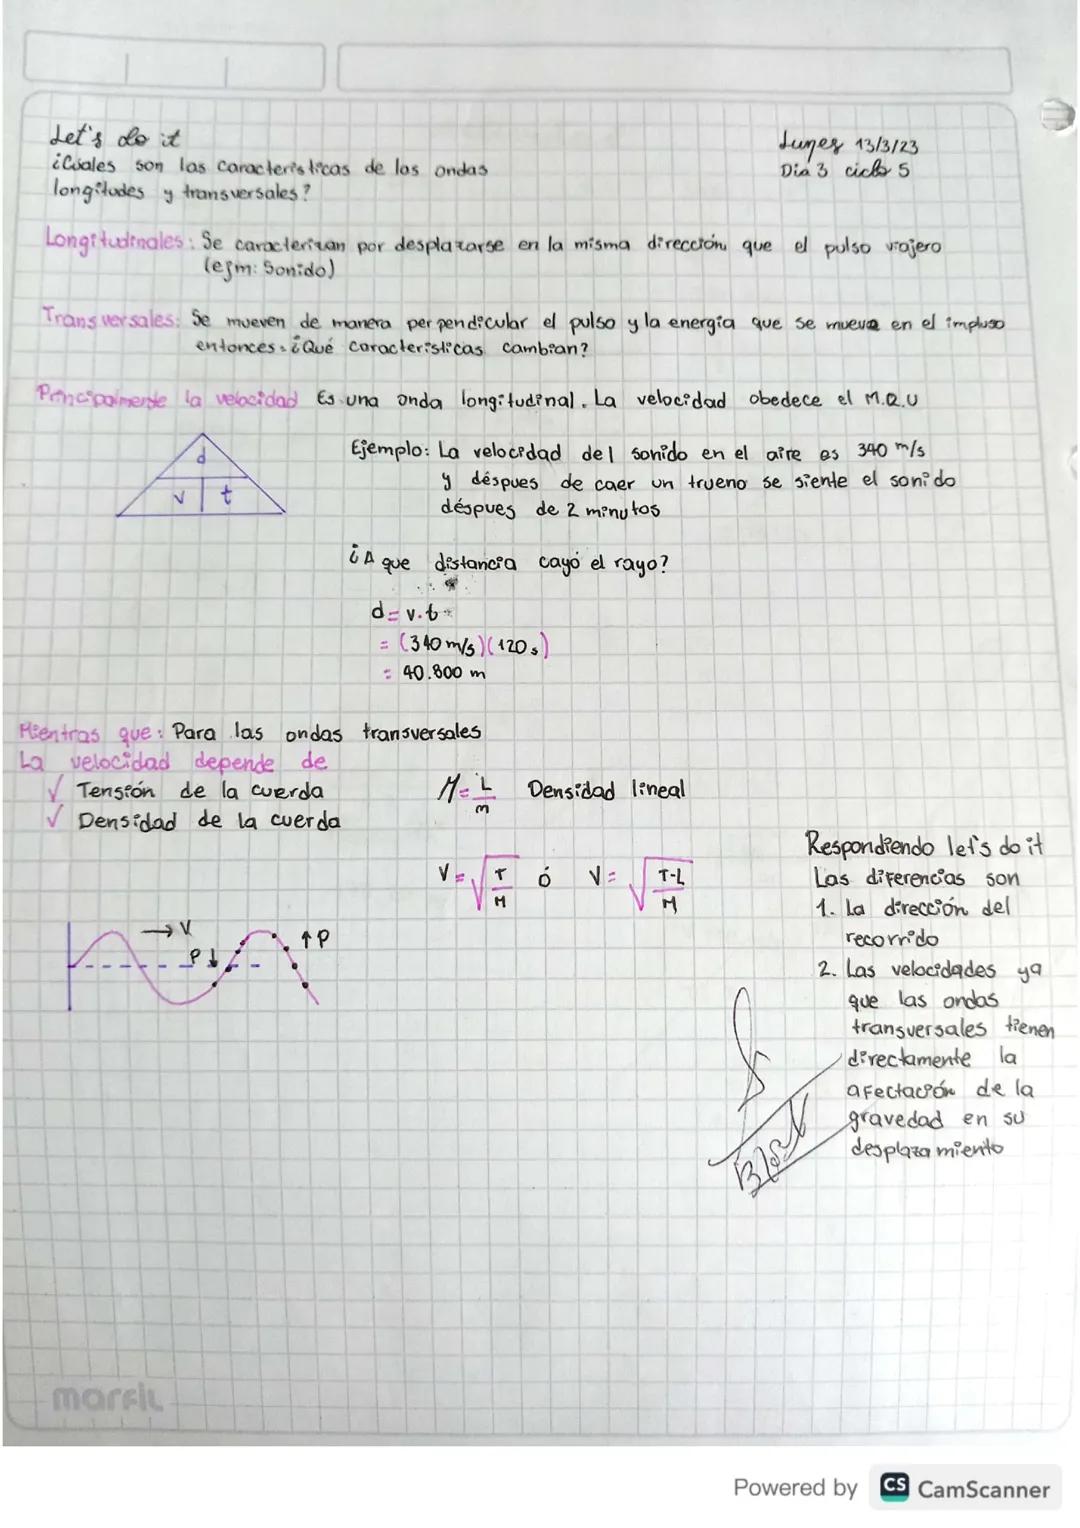 Let's do it
Lunes 13/3/23
¿Cuales son las caracteristicas de las ondas
Dia 3 ciclo 5
longitudes y transversales?
Longitudinales: Se caracterizan por desplazarse en la misma dirección que el pulso viajero
(ejm: Sonido)
Transversales: Se mueven de manera perpendicular el pulso y la energia que se mueva en el impluso
entonces: ¿Qué caracteristicas cambian?
Principalmente la velocidad Es una onda longitudinal. La velocidad obedece el M.R.U
d
v t
Ejemplo: La velocidad del sonido en el aire es 340 m/s
y déspues de caer un trueno se siente el sonido
déspues de 2 minutos
¿A que distancia cayó el rayo?
d = v.t
= (340 m/s)(120s)
= 40.800 m
Mientras que: Para las ondas transversales
La velocidad depende de
√ Tensión de la cuerda
√ Densidad de la cuerda
M = L/m Densidad lineal
V = √T/M ó V = √T-L/M
→ V
P ↓
↑ P
Respondiendo let's do it
Las diferencias son
1. La dirección del
recorrido
2. Las velocidades ya
que las ondas
transversales tienen
directamente la
afectación de la
gravedad en su
desplazamiento
marfil
Powered by CS CamScanner